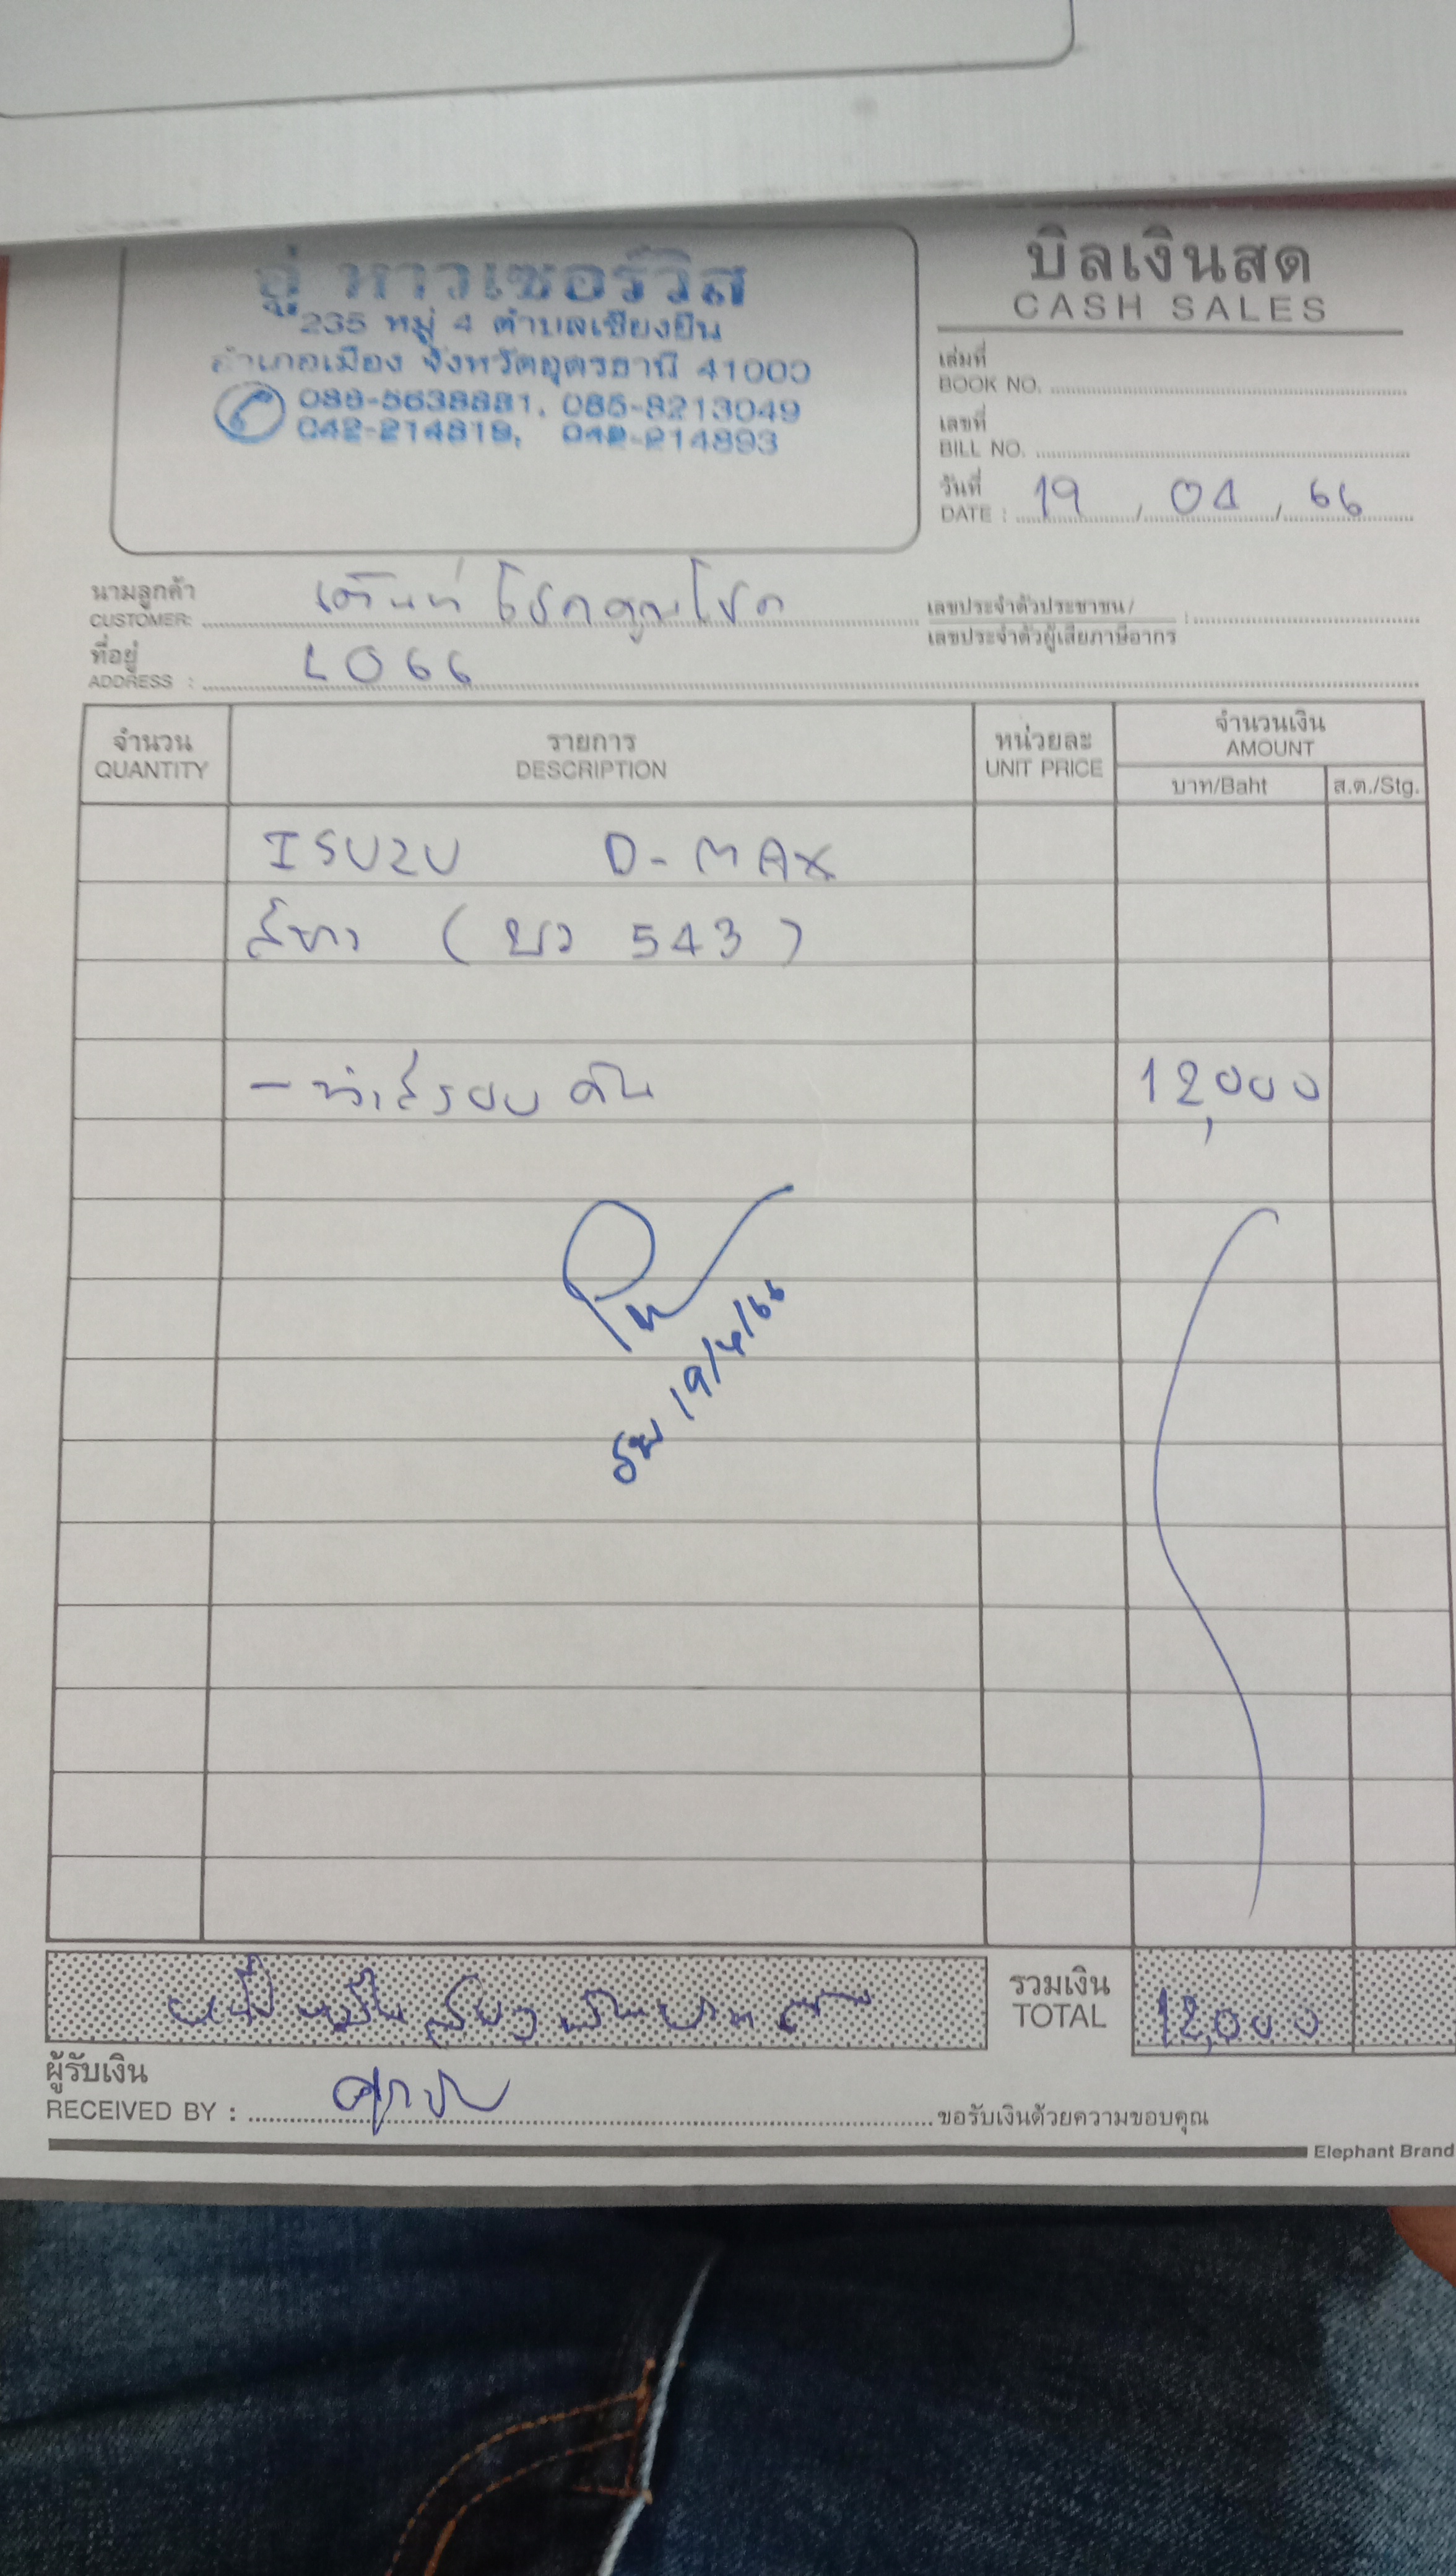 อู่ หาวเซอร์วิส
235 หมู่ 4 ตำบลเชียงยืน
อำเภอเมือง จังหวัดอุดรธานี 41000
085-8213049
042-214819, 042-214893
บิลเงินสด
CASH SALES
เล่มที่
BOOK NO.
เลขที่
BILL NO.
วันที่
DATE : 19 / 04 / 66
นามลูกค้า
CUSTOMER: เต๊นท์ โชคคูณโชค
เลขประจำตัวประชาชน /
เลขประจำตัวผู้เสียภาษีอากร :
ที่อยู่
ADDRESS : LO66
จำนวน รายการ หน่วยละ จำนวนเงิน
QUANTITY DESCRIPTION UNIT PRICE AMOUNT
บาท/Baht ส.ต./Stg.
ISUZU D-MAX
สีขาว ( บว 543 )
- ทำสีรอบคัน 12,000
19/4/66
หนึ่งหมื่นสองพันบาท รวมเงิน
TOTAL 12,000
ผู้รับเงิน
RECEIVED BY : ขอรับเงินด้วยความขอบคุณ
Elephant Brand